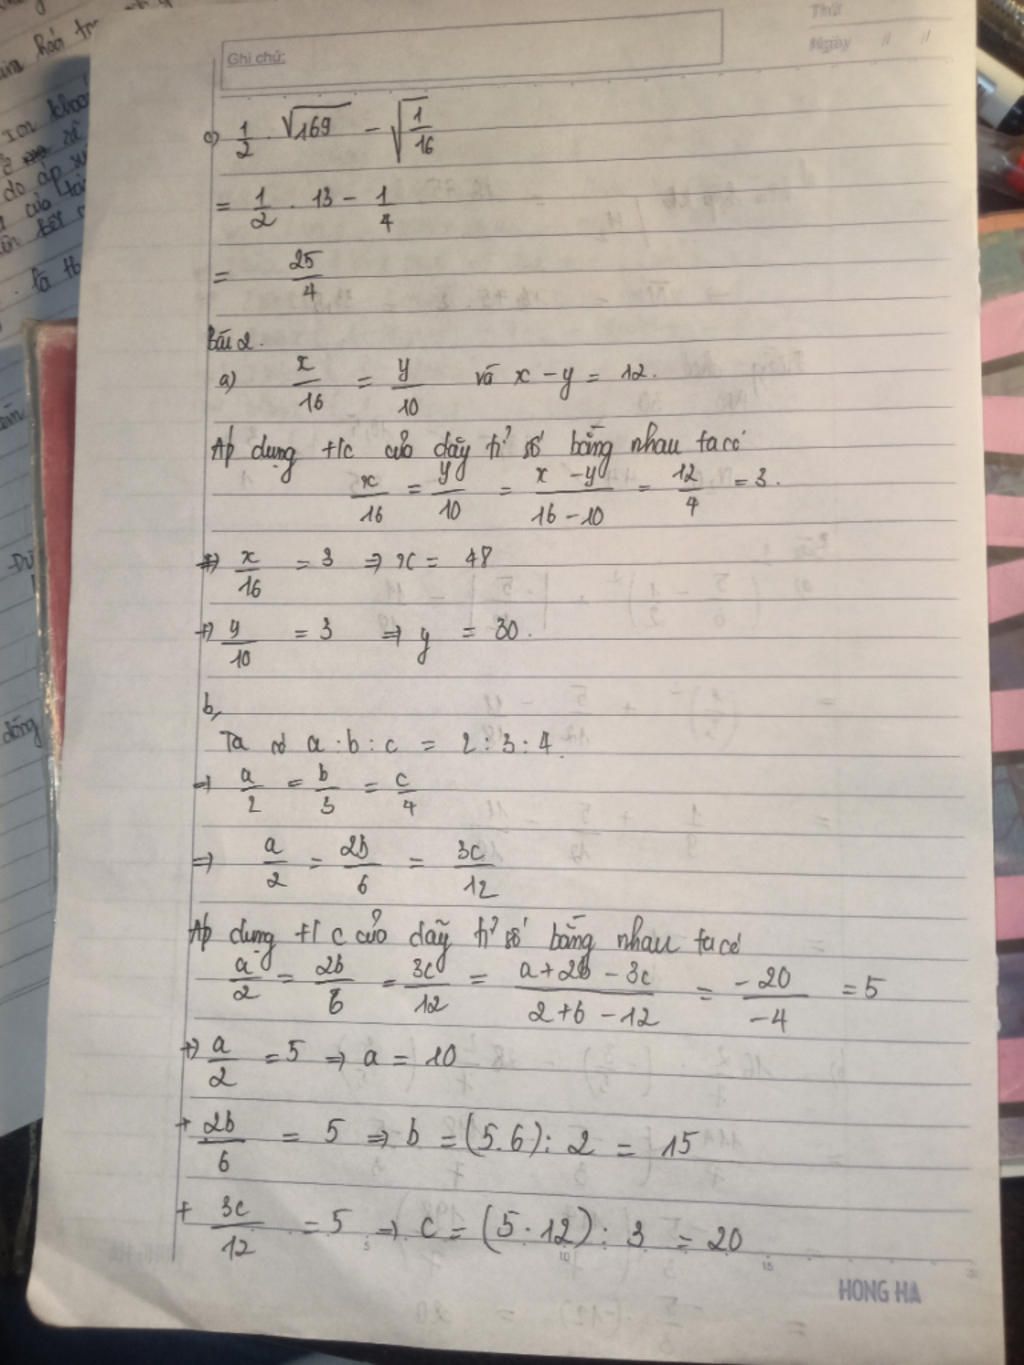 Thứ
Ghi chú:
Ngày / /
c) 1/2 . √169 − √(1/16)
= 1/2 . 13 − 1/4
= 25/4
Bài 2.
a) x/16 = y/10 và x − y = 12.
Áp dụng t/c của dãy tỉ số bằng nhau ta có
x/16 = y/10 = (x − y)/(16 − 10) = 12/4 = 3.
+) x/16 = 3 ⇒ x = 48
+) y/10 = 3 ⇒ y = 30.
b,
Ta có a : b : c = 2 : 3 : 4.
⇒ a/2 = b/3 = c/4
⇒ a/2 = 2b/6 = 3c/12
Áp dụng t/c của dãy tỉ số bằng nhau ta có
a/2 = 2b/6 = 3c/12 = (a + 2b − 3c)/(2 + 6 − 12) = −20/−4 = 5
+) a/2 = 5 ⇒ a = 10
+ 2b/6 = 5 ⇒ b = (5.6) : 2 = 15
+ 3c/12 = 5 ⇒ c = (5 . 12) : 3 = 20
5 10 15
HONG HA